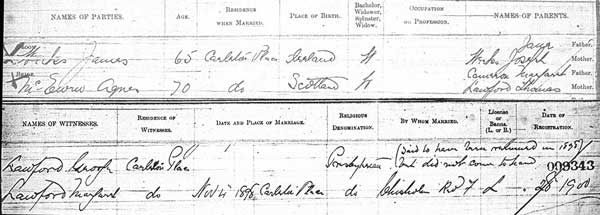 NAMES OF PARTIES. AGE. RESIDENCE WHEN MARRIED. PLACE OF BIRTH. Bachelor, Widower, Spinster, Widow. OCCUPATION OR PROFESSION. NAMES OF PARENTS.
Jane Father.
James 65 Carleton Place Ireland W Joseph Mother.
BRIDE Cameron Margaret Father.
McEwen Agnes 70 do Scotland W Lawford Thomas Mother.
NAMES OF WITNESSES. RESIDENCE OF WITNESSES. DATE AND PLACE OF MARRIAGE. RELIGIOUS DENOMINATION. BY WHOM MARRIED. License or Banns. (L. or B.) DATE OF REGISTRATION.
(Said to have been returned in 1898)
Lawford Carleton Place Presbyterian but did not come to hand 009343
Lawford Margaret do Nov 4 1898 Carleton Place do L 28 1900